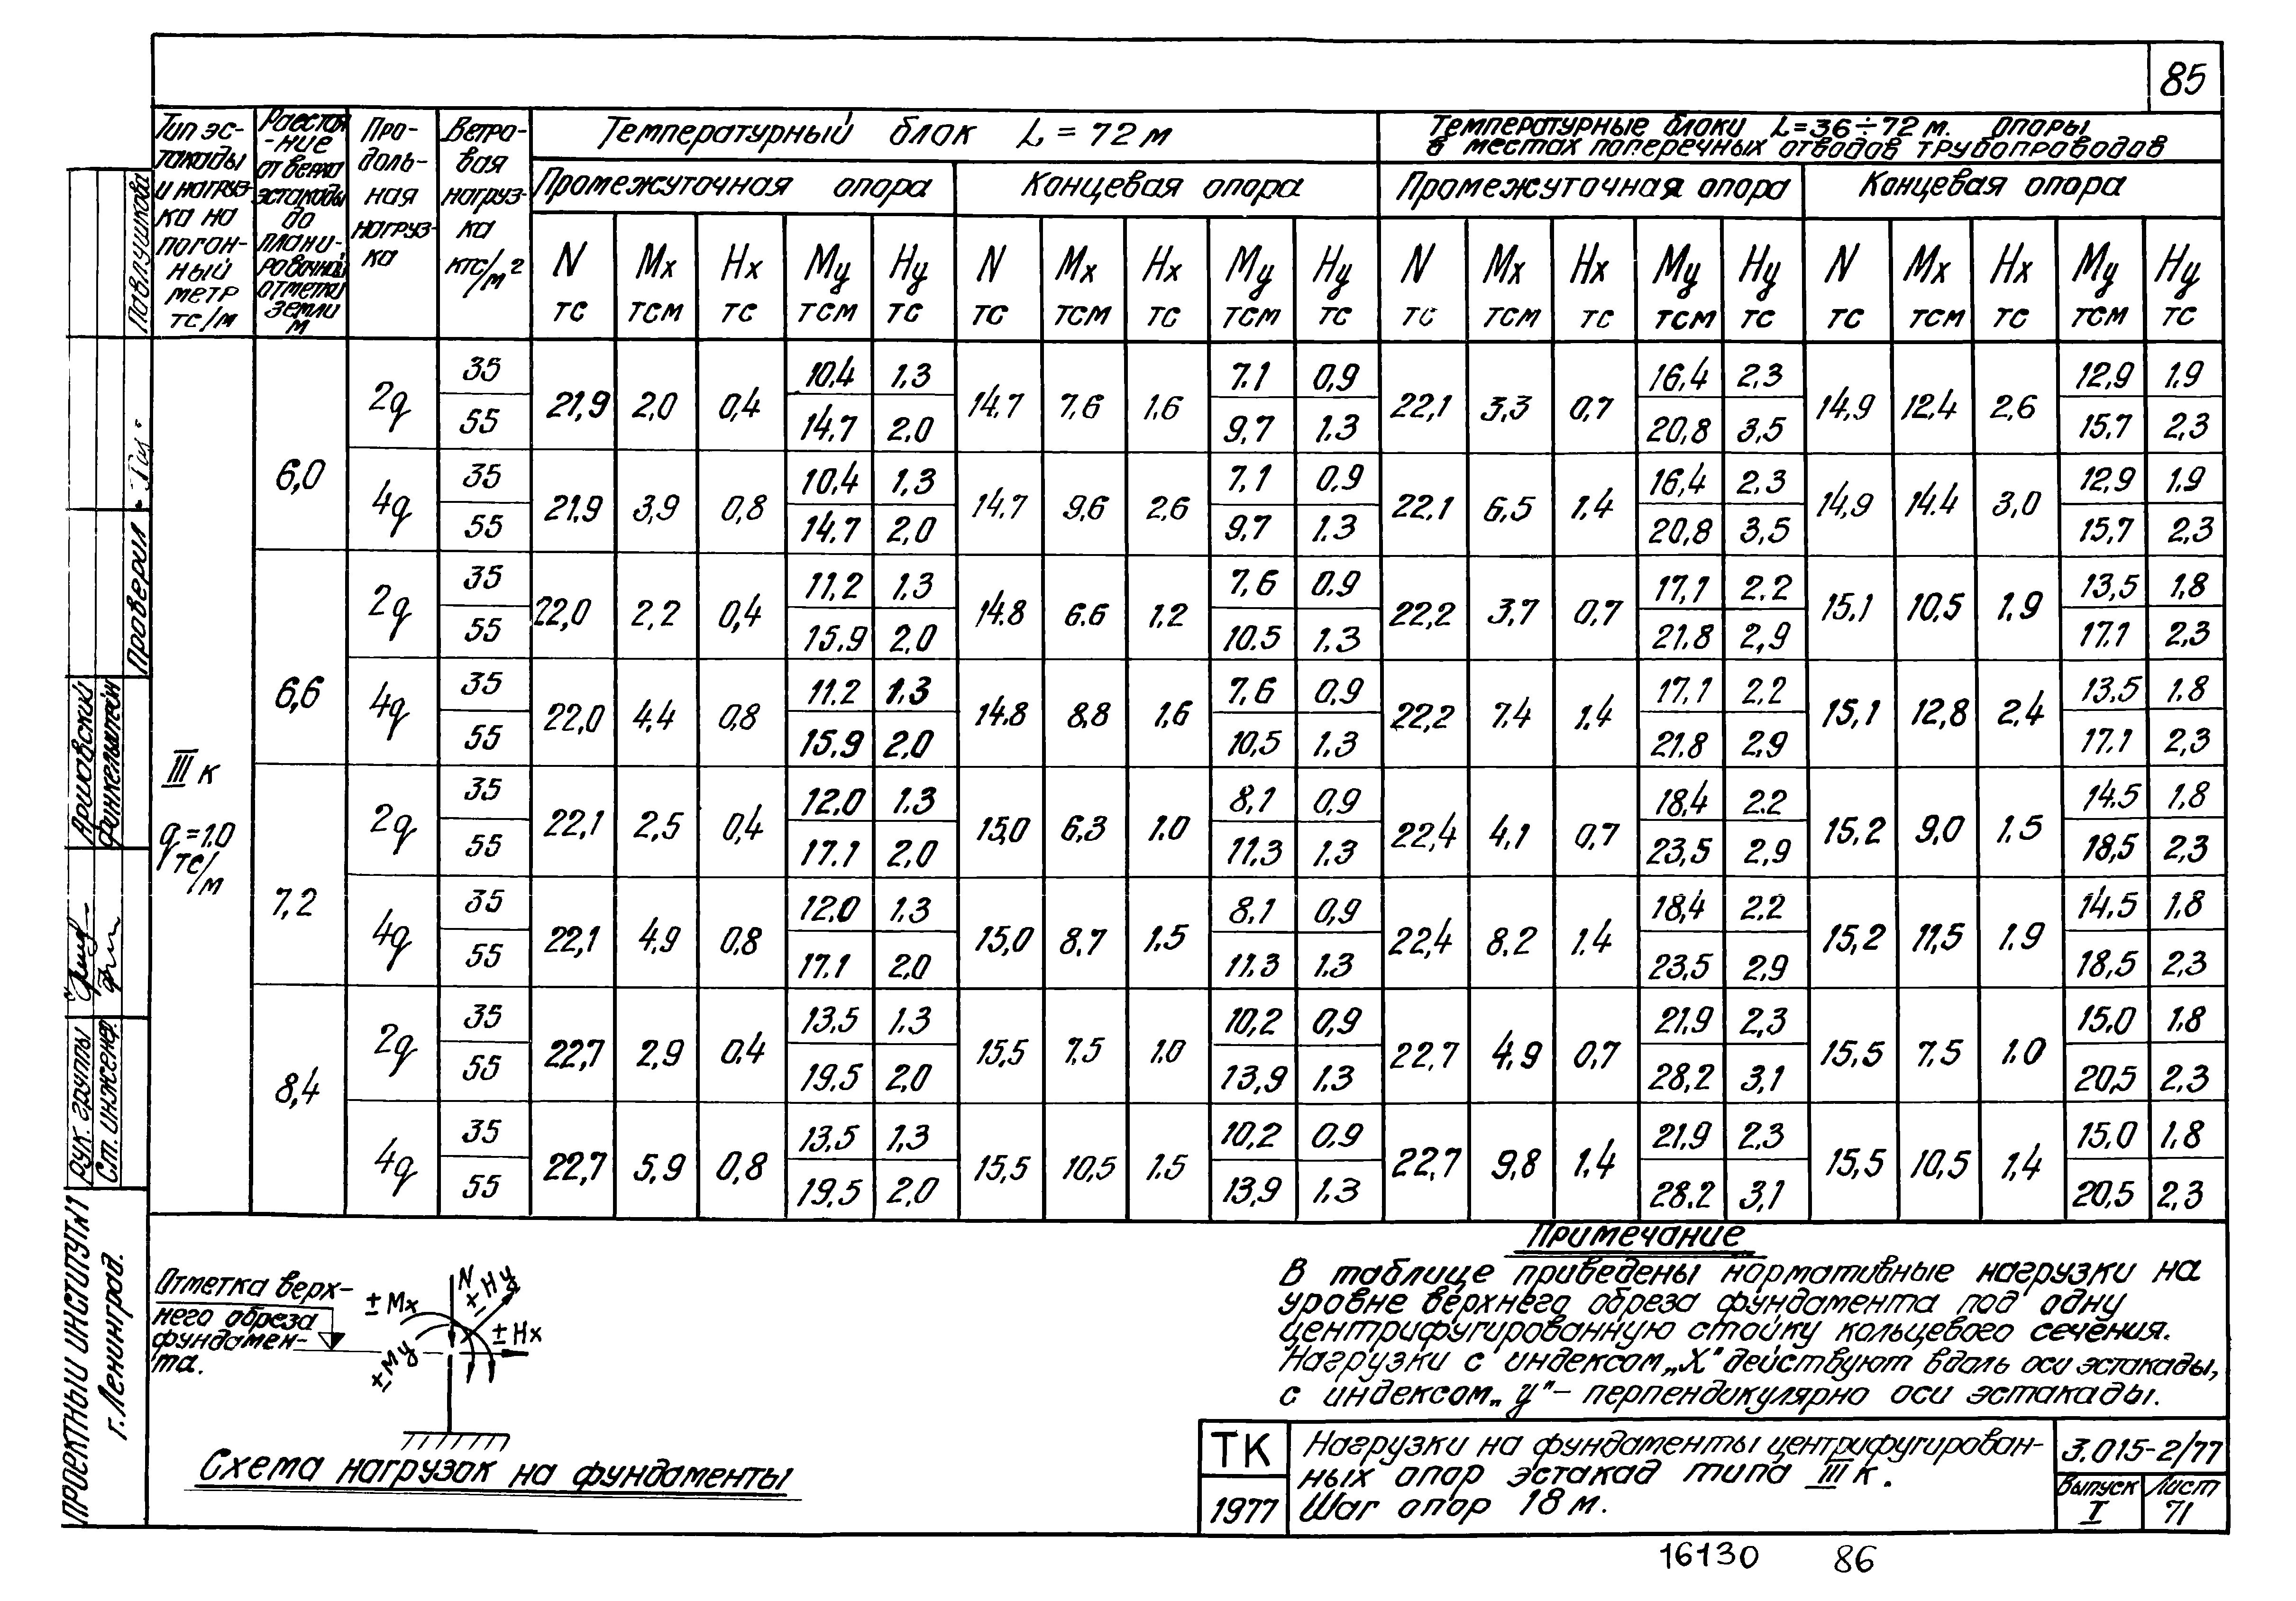 85
Тип эс-
такады
и нагруз-
ка на
погон-
ный
метр
тс/м
Расстоя-
-ние
от верха
эстакады
до
плани-
ровочной
отметки
земли
м
Про-
доль-
ная
нагруз-
ка
Ветро-
вая
нагруз-
ка
кгс/м²
Температурный блок L = 72 м
Температурные блоки L=36÷72 м. опоры
в местах поперечных отводов трубопроводов
Промежуточная опора Концевая опора Промежуточная опора Концевая опора
N Mx Hx My Hy N Mx Hx My Hy N Mx Hx My Hy N Mx Hx My Hy
тс тсм тс тсм тс тс тсм тс тсм тс тс тсм тс тсм тс тс тсм тс тсм тс
III к
q=1.0
тс/м
6,0
2q 35 21,9 2,0 0,4 10,4 1,3 14,7 7,6 1.6 7.1 0,9 22,1 3,3 0,7 16,4 2,3 14,9 12,4 2,6 12,9 1.9
55 14,7 2,0 9,7 1.3 20,8 3,5 15,7 2,3
4q 35 21,9 3,9 0,8 10,4 1,3 14,7 9,6 2,6 7,1 0,9 22,1 6,5 1,4 16,4 2,3 14,9 14.4 3,0 12,9 1.9
55 14.7 2,0 9,7 1.3 20,8 3,5 15,7 2,3
6,6
2q 35 22,0 2,2 0,4 11,2 1.3 14.8 6.6 1.2 7,6 0.9 22,2 3,7 0,7 17,1 2.2 15.1 10,5 1.9 13,5 1,8
55 15.9 2.0 10.5 1.3 21.8 2,9 17.1 2,3
4q 35 22,0 4,4 0,8 11.2 1.3 14.8 8,8 1,6 7,6 0,9 22,2 7.4 1.4 17,1 2,2 15,1 12,8 2,4 13,5 1.8
55 15.9 2.0 10,5 1.3 21.8 2,9 17.1 2,3
7,2
2q 35 22,1 2,5 0,4 12,0 1.3 15,0 6,3 1.0 8,1 0,9 22,4 4,1 0,7 18,4 2.2 15,2 9,0 1.5 14.5 1,8
55 17.1 2,0 11,3 1.3 23,5 2,9 18,5 2,3
4q 35 22,1 4,9 0,8 12,0 1.3 15,0 8,7 1.5 8.1 0,9 22,4 8.2 1.4 18,4 2,2 15,2 11,5 1.9 14.5 1.8
55 17.1 2,0 11.3 1.3 23,5 2,9 18,5 2,3
8,4
2q 35 22,7 2,9 0.4 13,5 1.3 15.5 7,5 1.0 10,2 0,9 22,7 4,9 0,7 21,9 2,3 15,5 7,5 1.0 15.0 1.8
55 19.5 2,0 13,9 1.3 28,2 3,1 20,5 2,3
4q 35 22,7 5,9 0,8 13,5 1,3 15,5 10,5 1.5 10,2 0.9 22,7 9,8 1.4 21,9 2,3 15,5 10,5 1,4 15,0 1.8
55 19,5 2,0 13,9 1.3 28.2 3,1 20,5 2,3
Отметка верх-
него обреза
фундамен-
та.
N
± Hy
± Mx
± Hx
± My
Схема нагрузок на фундаменты
Примечание
В таблице приведены нормативные нагрузки на
уровне верхнего обреза фундамента под одну
центрифугированную стойку кольцевого сечения.
Нагрузки с индексом „X" действуют вдоль оси эстакады,
с индексом „y" - перпендикулярно оси эстакады.
ТК
1977
Нагрузки на фундаменты центрифугирован-
ных опор эстакад типа III к.
Шаг опор 18 м.
3.015-2/77
Выпуск
I
Лист
71
16130 86
Проектный институт №1
г. Ленинград.
Рук. группы
Ст. инженер.
Аршавский
Финкельштейн
Проверил
Павлушкова